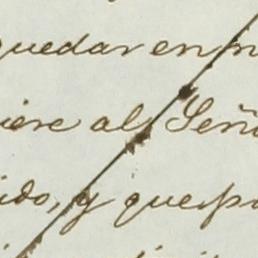 quedar en
iere al Señ
ido, y que pa